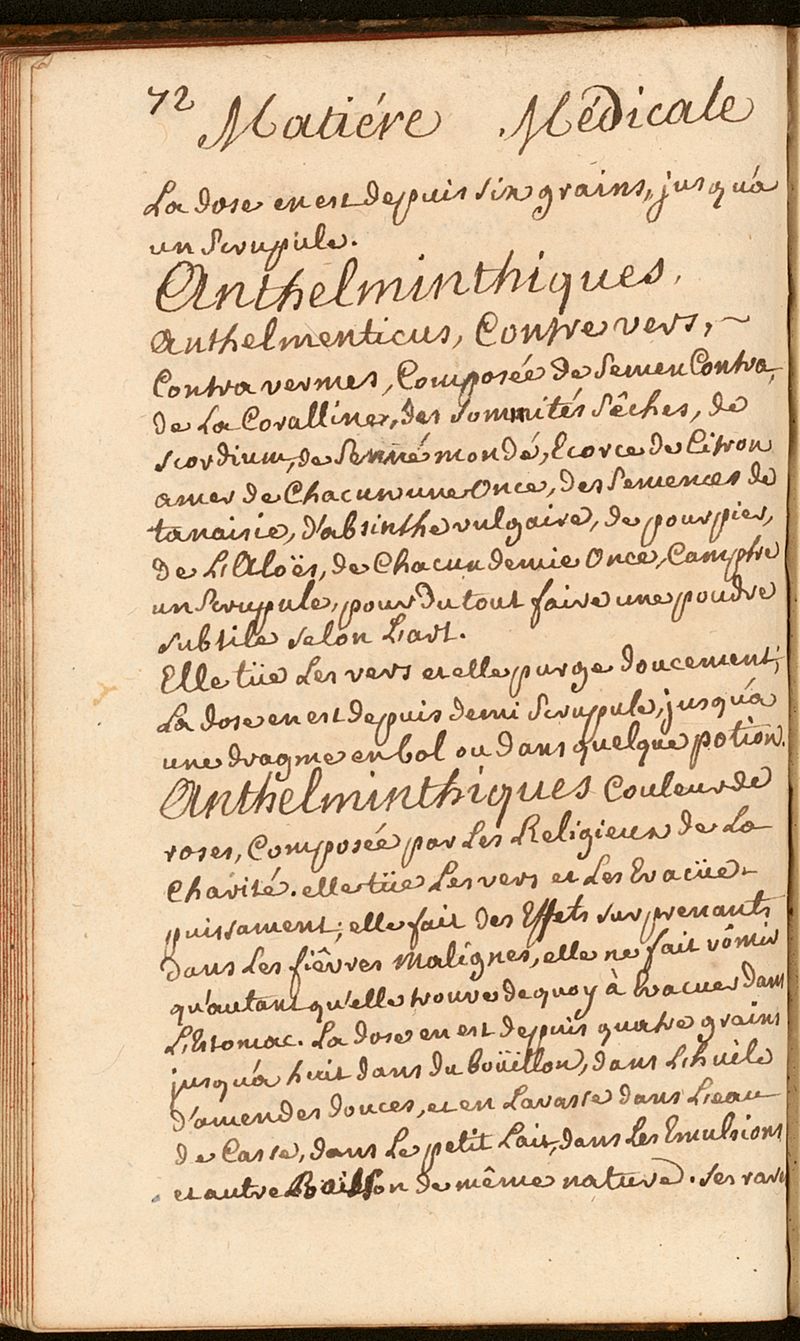 72
Matiére Médicale
La dose en est depuis six grains, jusqu'a
un Scrupule.
Anthelminthiques,
anthelmenticus, Contre vers, ~
Contra vermes, Composée de Semen Contra,
de La Coralline, des sommités Sêches, de
scordium, de Senné mondé, Ecorce de Citron
amer de Chacun une Once, des Semences de
tanaisie, d'absinthe vulgaire, de pourpier,
de L'Aloës, de Chacun demie Once, Camphre
un Scrupule, pour du tout faire une poudre
subtile selon L'art.
Elle tüe Les vers et elle purge doucement;
La dose en est depuis demi Scrupule, jusqu'a
une dragme en bol ou dans quelque potion.
Anthelminthiques Couleur de
roses, Composée par Les Religieux de La
Charité. elle tüe Les vers et Les Evacüe
puissament; elle fait des Effets surprenants
dans Les fiêvres malignes, elle ne fait vômir
qu'autant qu'elle trouve de quoy à Evacuer dans
L'Estomac. La dose en est depuis quatre grains
jusqu'a huit dans du boüillon, dans L'huile
d'amendes douces, et en Lavasse dans L'eau
de Casse, dans Le petit Lait, dans Les Emulsions
et autre Boisson de même nature. Ses rares